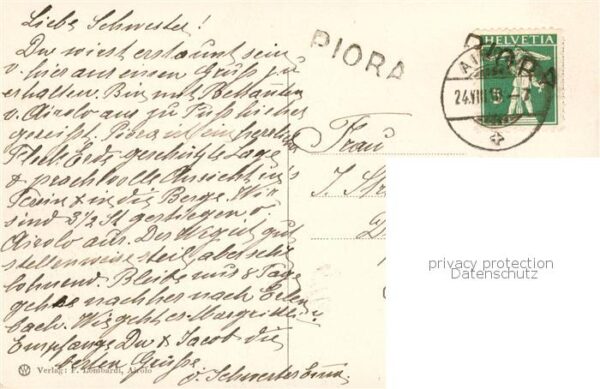 Liebe Schwester!
Du wirst erstaunt sein
v. hier aus einen Gruss zu
erhalten. Bin mit Bekannten
v. Airolo aus zu Fuss hieher
gereist. Piora ist ein herrlicher
Fleck Erde, geschützte Lage
& prachtvolle Aussicht in's
Tessin & in die Berge. Wir
sind 3½ St gestiegen v.
Airolo aus. Der Weg ist gut
stellenweise steil, aber sehr
lohnend. Bleibe noch 8 Tage
gehe nachher nach Erlen
bach. Wie geht es Margritli
Empfange Du & Jacob die
besten Grüsse
d. Schwester Emma
Verlag: F. Lombardi, Airolo
PIORA
HELVETIA
PIORA
24.VIII
Frau
J.
privacy protection
Datenschutz